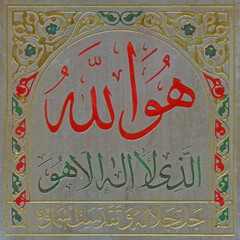 هُوَ اللّٰه
الذي لا إله إلا هو
جل جلاله وتقدست أسماؤه